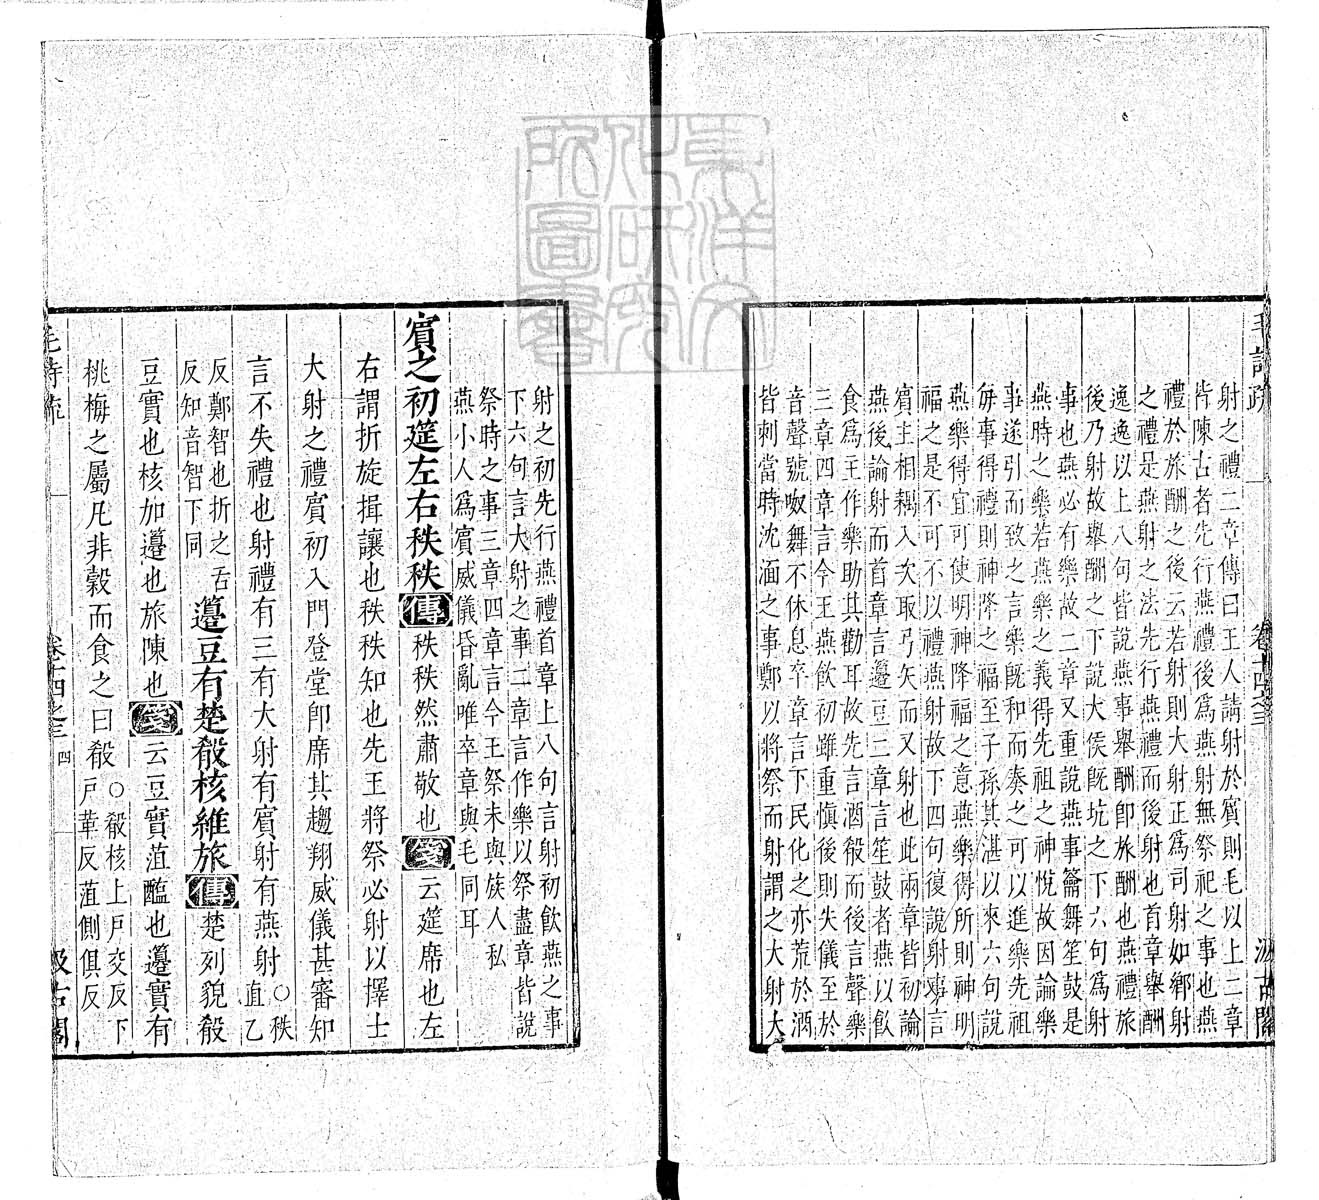 毛詩疏
卷十四之三
汲古閣
射之禮二章傳曰王人請射於賓則毛以上二章
皆陳古者先行燕禮後爲燕射無祭祀之事也燕
禮於旅酬之後云若射則大射正爲司射如鄉射
之禮是燕射之法先行燕禮而後射也首章舉酬
逸逸以上八句皆說燕事舉酬卽旅酬也燕禮旅
後乃射故舉酬之下說大侯旣抗之下六句爲射
事也燕必有樂故二章又重說燕事籥舞笙鼓是
燕時之樂若燕樂之義得先祖之神悅故因論樂
事遂引而致之言樂旣和而奏之可以進樂先祖
每事得禮則神降之福至子孫其湛以來六句說
燕樂得宜可使明神降福之意燕樂得所則神明
福之是不可不以禮燕射故下四句復說射事言
賓主相耦入次取弓矢而又射也此兩章皆初論
燕後論射而首章言籩豆三章言笙鼓者燕以飲
食爲主作樂助其勸耳故先言酒殽而後言聲樂
三章四章言今王燕飲初雖重愼後則失儀至於
音聲號呶舞不休息卒章言下民化之亦荒於酒
皆刺當時沈湎之事鄭以將祭而射謂之大射大
射之初先行燕禮首章上八句言射初飲燕之事
下六句言大射之事二章言作樂以祭盡章皆說
祭時之事三章四章言今王祭未與族人私
燕小人爲賓威儀昏亂唯卒章與毛同耳
賓之初筵左右秩秩傳秩秩然肅敬也箋云筵席也左
右謂折旋揖讓也秩秩知也先王將祭必射以擇士
大射之禮賓初入門登堂卽席其趨翔威儀甚審知
言不失禮也射禮有三有大射有賓射有燕射○秩直乙
反鄭智也折之舌反知音智下同籩豆有楚殽核維旅傳楚列貌殽
豆實也核加籩也旅陳也箋云豆實菹醢也籩實有
桃梅之屬凡非穀而食之曰殽○殽核上戶交反下戶革反菹側俱反
毛詩疏
卷十四之三
四
汲古閣